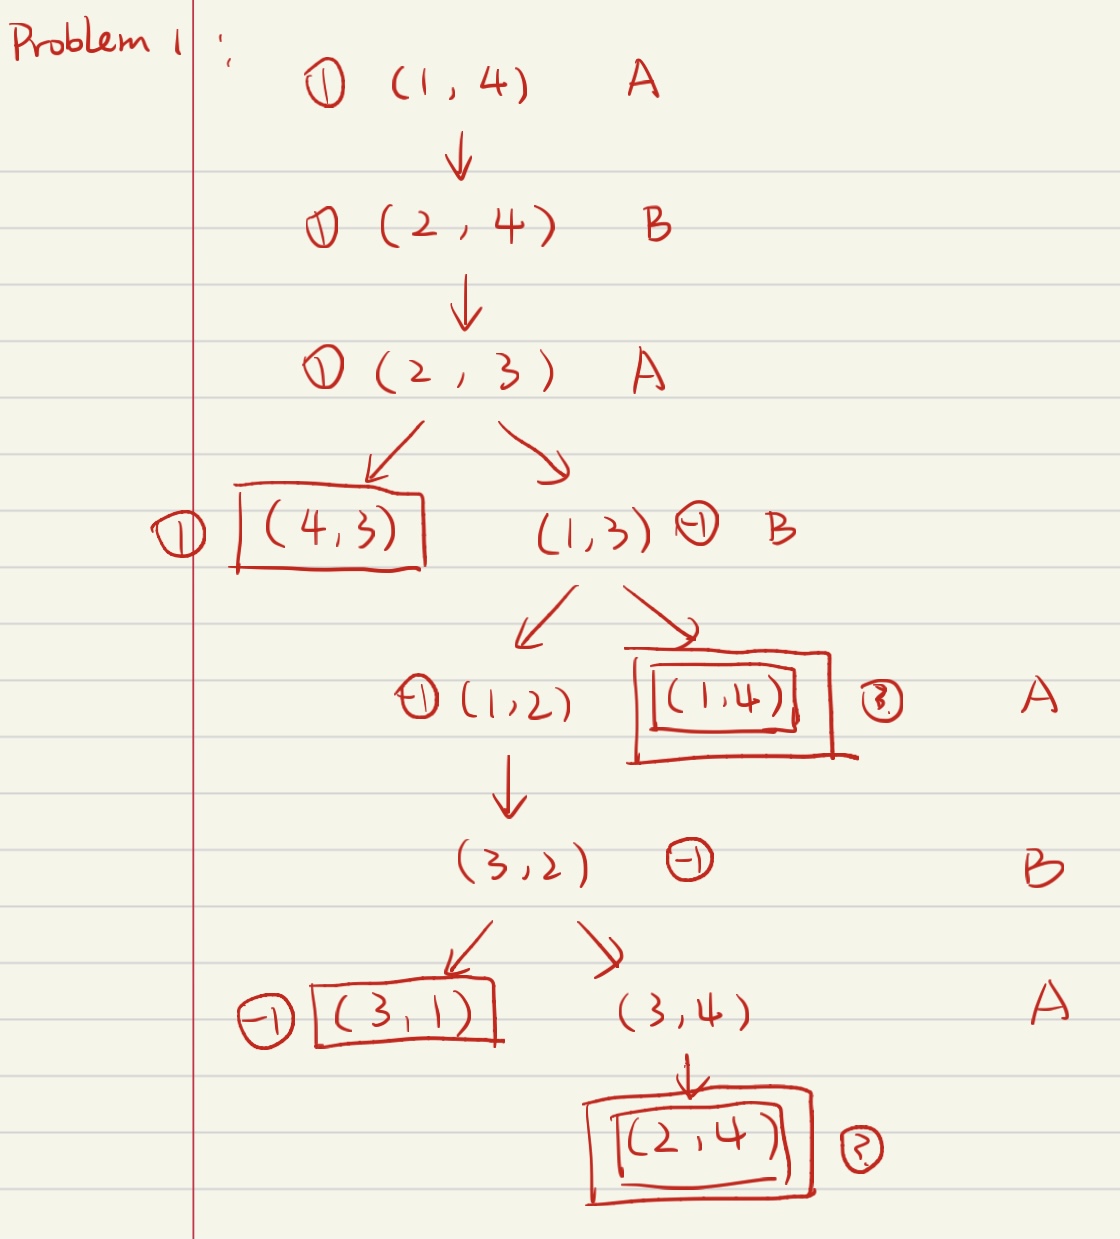 Problem 1 :
① (1, 4) A
① (2, 4) B
① (2, 3) A
① (4, 3) (1, 3) -1 B
-1 (1, 2) (1, 4) ? A
(3, 2) -1 B
-1 (3, 1) (3, 4) A
(2, 4) ?